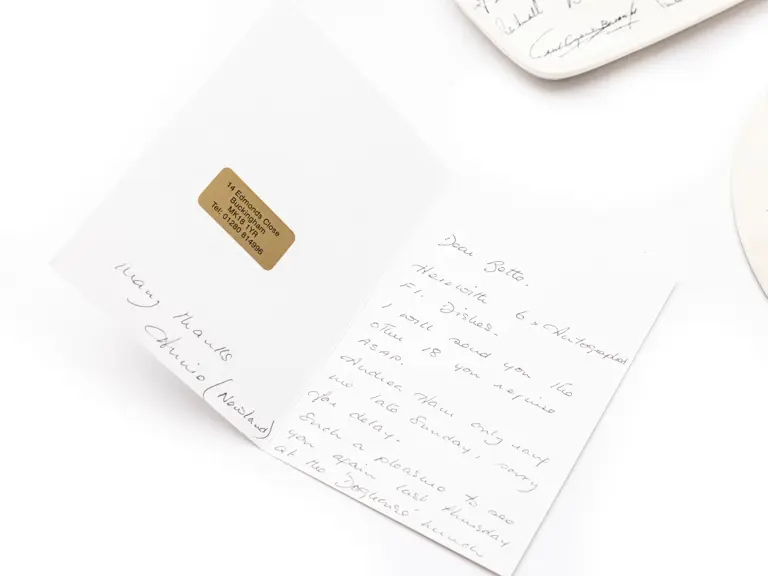 14 Edmonds Close
Buckingham
MK18 1YR
Tel: 01280 814996
Many thanks
Annie (Newland)
Dear Bette.
Herewith 6 x Autographed
F1. Dishes.
I will send you the
other 18 you require
ASAP.
Andrea Ham only rang
me late Sunday, sorry
for delay.
Such a pleasure to see
you again last Thursday
at the lunch